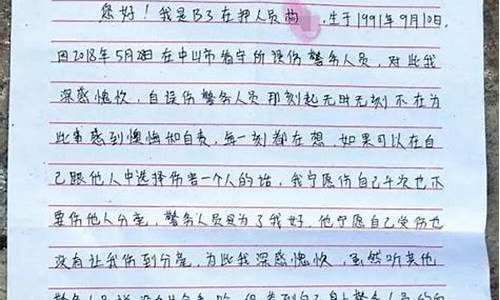 您好！我是B3在押人员尚 ，生于1991年9月10日．
因2018年5月28日在中山市看守所误伤警务人员，对此我
深感愧疚，自误伤警务人员那刻起无时无刻不在为
此事感到懊悔如自责，每一刻都在想，如果可以在自
己跟他人中选择伤害一个人的话，我宁愿伤自己千次也不
要伤他人分毫，警务人员是为了我好，他宁愿自己受伤也
没有让我伤到分毫，为此我深感愧疚，虽然听其他
警务人员说没有什么事